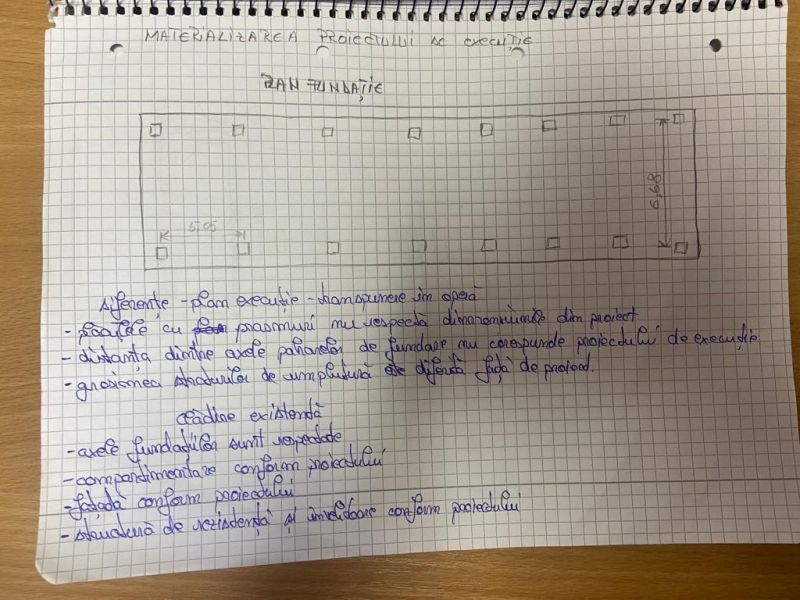 MATERIALIZAREA PROIECTULUI DE EXECUȚIE
PLAN FUNDAȚIE
5,05
6,68
diferențe - plan execuție - transpunere în operă
- plăcuțele cu prasmuri nu respectă dimensiunile din proiect
- distanța dintre axele paharelor de fundare nu corespunde proiectului de execuție
- grosimea straturilor de umplutură diferă față de proiect.
clădire existentă
- axele fundațiilor sunt respectate
- compartimentare conform proiectului
- fațadă conform proiectului
- structură de rezistență și învelitoare conform proiectului